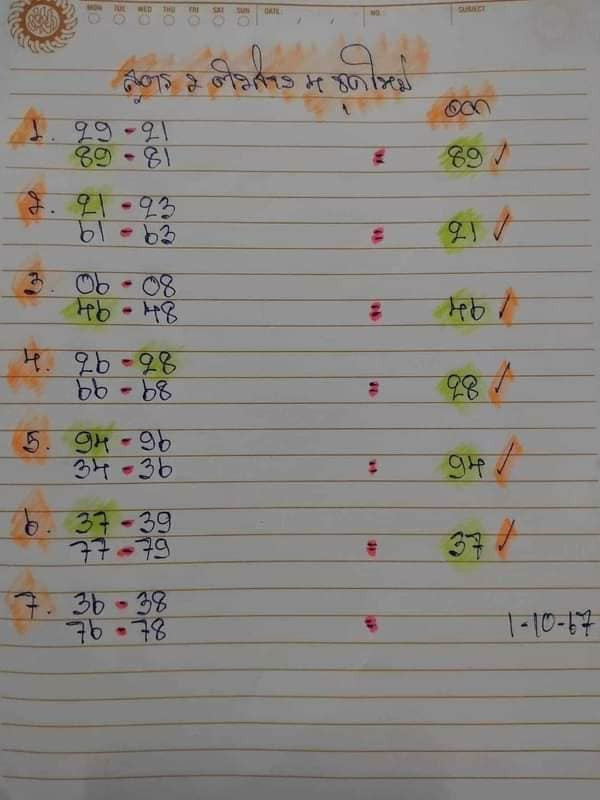 MON TUE WED THU FRI SAT SUN DATE: / / NO.: SUBJECT
สูตร 2 ตัวล่าง 4 ชุดใหม่
ออก
1. 29 - 21
89 - 81 = 89 ✓
2. 21 - 23
61 - 63 = 21 ✓
3. 06 - 08
46 - 48 = 46 ✓
4. 26 - 28
66 - 68 = 28 ✓
5. 94 - 96
34 - 36 = 94 ✓
6. 37 - 39
77 - 79 = 37 ✓
7. 36 - 38
76 - 78 = 1-10-67